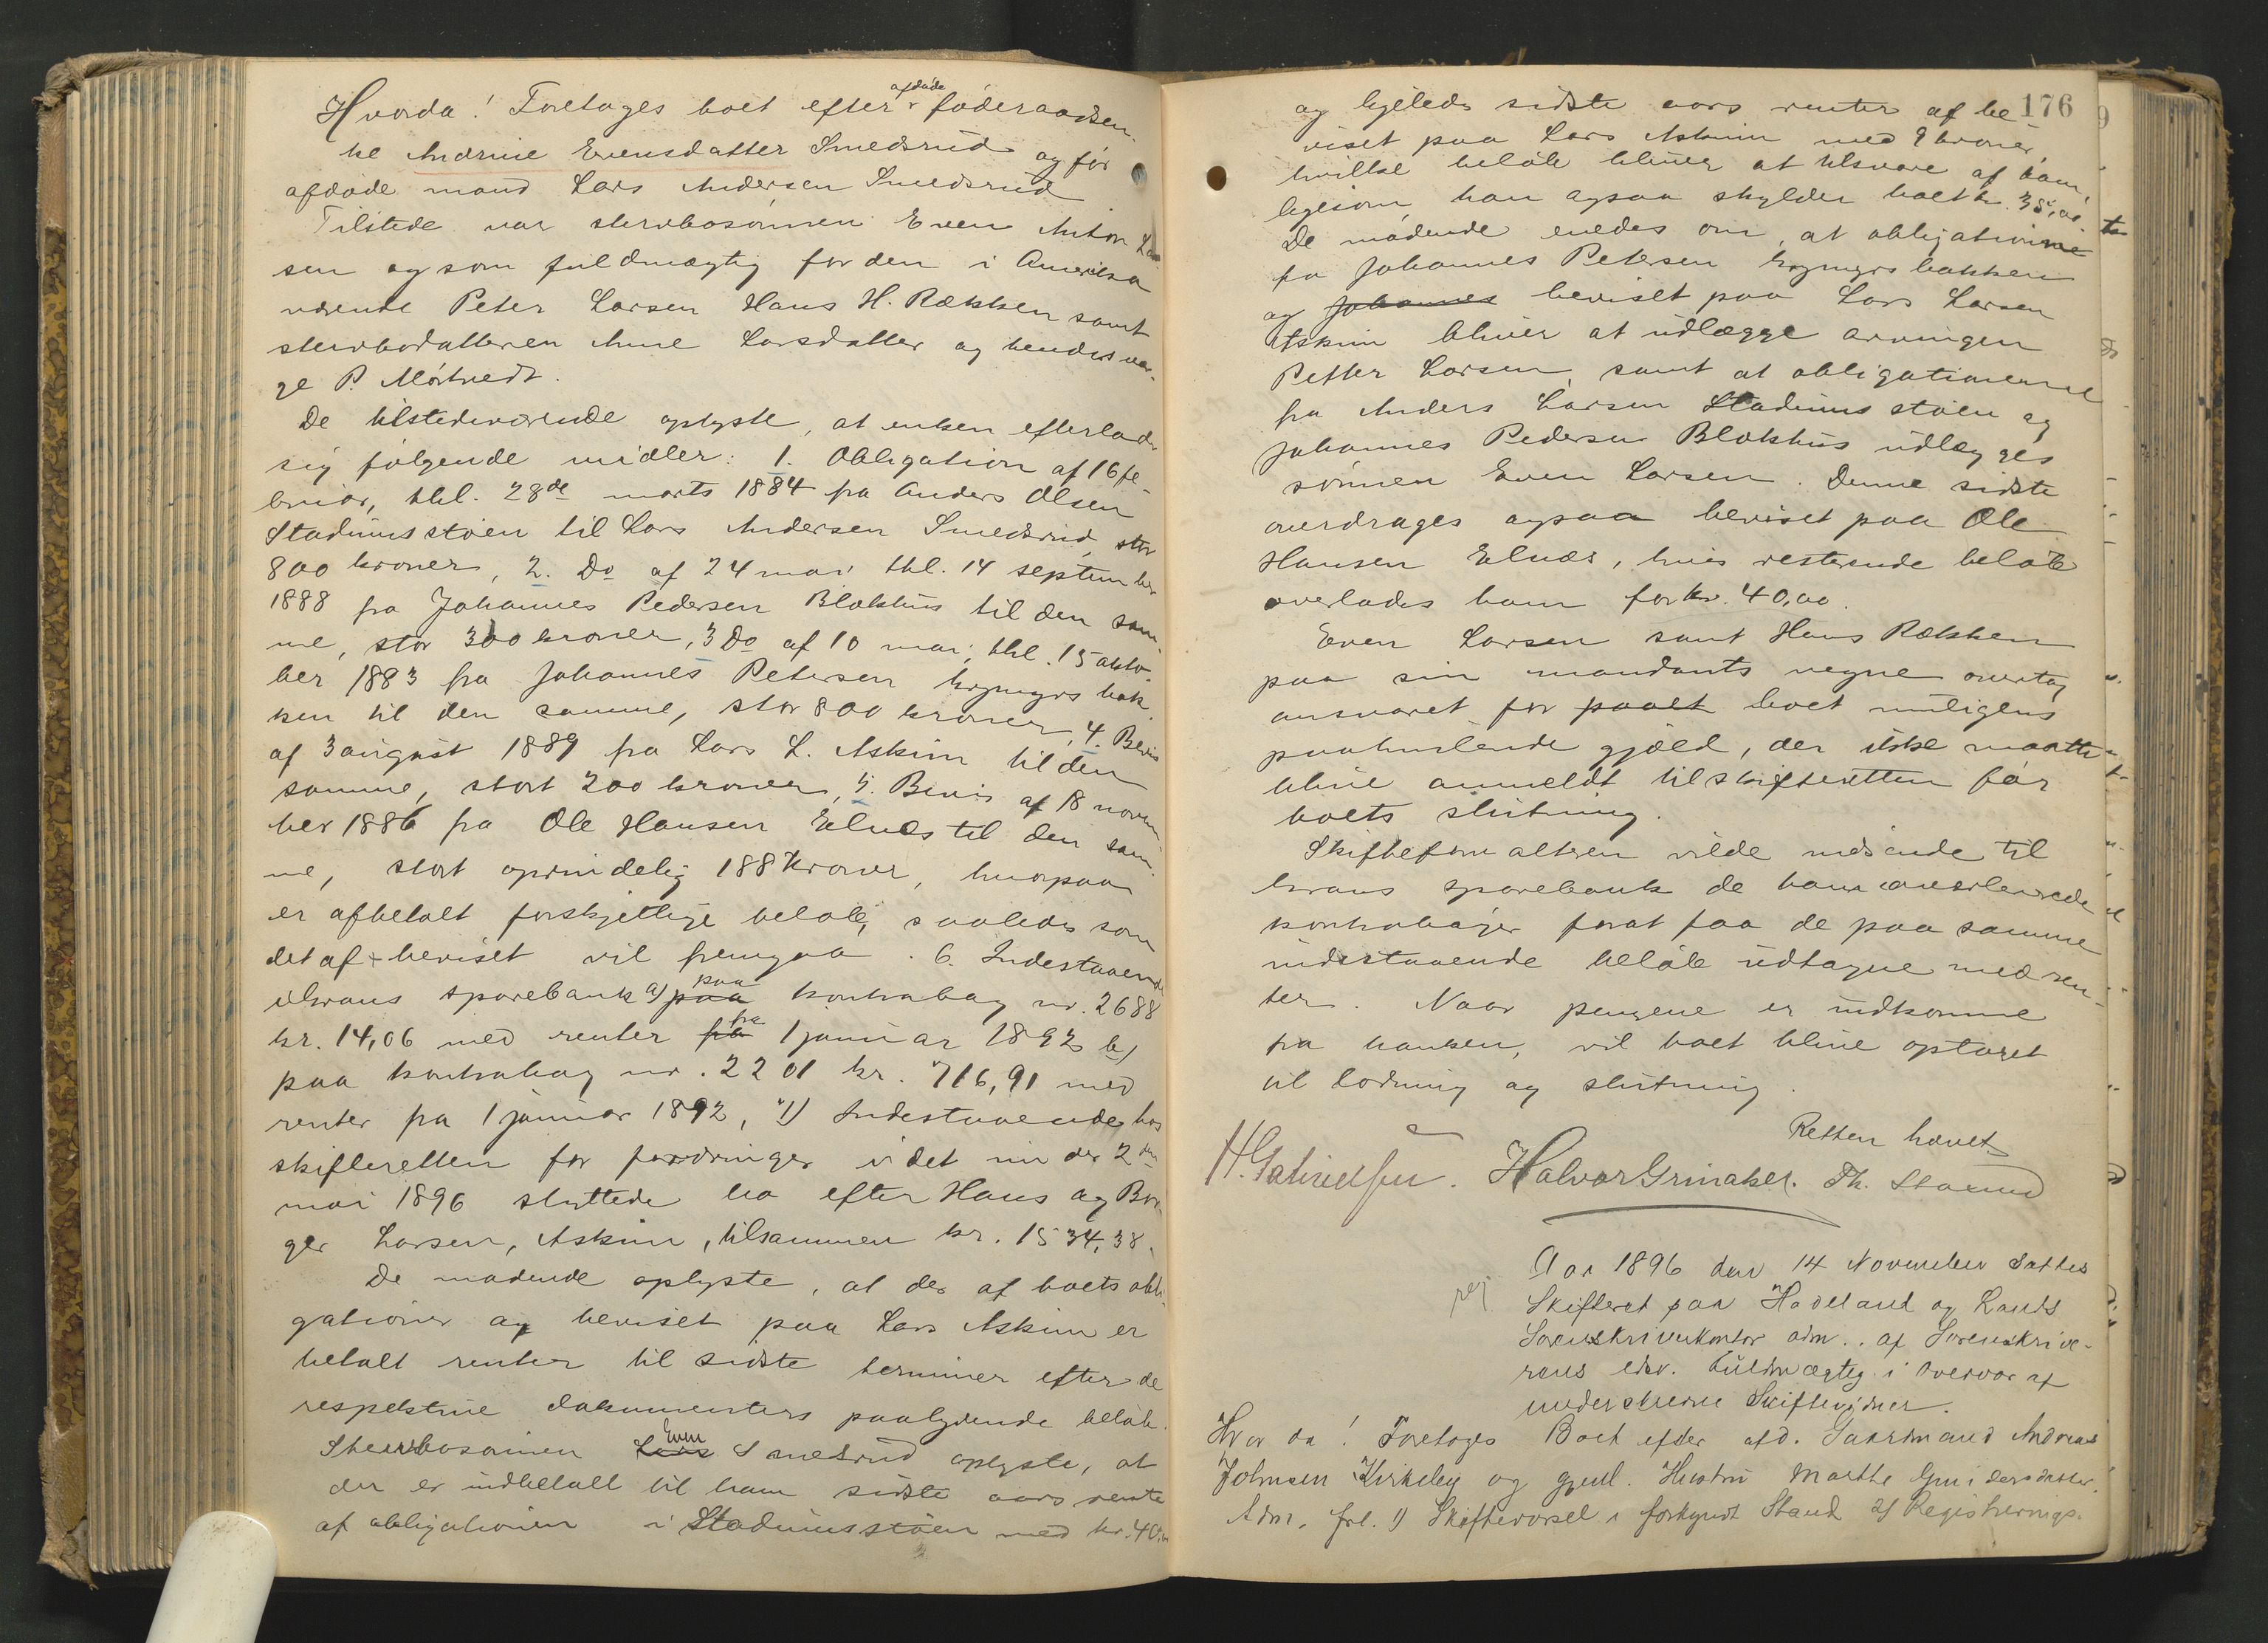 Hvorda! Foretages boet efter afdøde føderaadsen-
ke Andrine Evensdatter Smedsrud og før
afdøde mand Lars Andersen Smedsrud
Tilstede var stervbosønnen Even Anton Lar
sen og som fuldmægtig for den i Amerika
værende Peter Larsen Hans H. Rækken samt
stervbodatteren Anne Larsdatter og hendes ver-
ge P. Mörtvedt.
De tilstedeværende oplyste, at enken efterlader
sig følgende midler: 1. Obligation af 16 fe-
bruar, thl. 28de marts 1884 fra Anders Olsen
Stadumsstøen til Lars Andersen Smedsrud, stor
800 kroner, 2. Do af 24 mai thl. 14 september
1888 fra Johannes Pedersen Blokhus til den sam
me, stor 300 kroner, 3 Do af 10 mai, thl. 15 okto-
ber 1883 fra Johannes Petersen bak
ken til den samme, stor 800 kroner, 4. Bevis
af 3 august 1889 fra Lars L. Askim til den
samme, stort 200 kroner, 5. Bevis af 18 novem
ber 1886 fra Ole Hansen Elnæs til den sam
me, stort oprindelig 188 kroner, hvorpaa
er afbetalt forskjellige beløb, saaledes som
det af beviset vil fremgaa. 6. Indestaaende
i Brans sparebank a) paa paa kontrabog nr. 2688
kr. 14,06 med renter fra fra 1 januar 1892 b)
paa kontrabog nr. 2201 kr. 716,91 med
renter fra 1 januar 1892, 7) Indestaaende hos
skifteretten for fordringer i det nu der 2den
mai 1896 sluttede bo efter Hans og Bir-
ger Larsen, Askim, tilsammen kr. 1534,38.
De mødende oplyste, at der af boets obli-
gationer og beviset paa Lars Askim er
betalt renter til sidste terminer efter de
respektive dokumenters paalydende beløb.
Stervbosønnen Lars Even Smedsrud oplyste, at
der er indbetalt til ham sidste aars rente
af obligationen i Stadumsstøen med kr. 40,00
176
og ligeledes sidste aars renter af be-
viset paa Lars Askim med 9 kroner,
hvilke beløb bliver at tilsvare af ham,
ligesom han ogsaa skylder boet kr. 35,00
De mødende enedes om, at obligationerne
fra Johannes Petersen bakken
og Johannes beviset paa Lars Larsen
Askim bliver at udlægge arvingen
Petter Larsen, samt at obligationerne
fra Anders Larsen Stadums støen og
Johannes Pedersen Blokhus udlægges
sønnen Even Larsen. Denne sidste
overdrages ogsaa beviset paa Ole
Hansen Elnæs, hvis resterende beløb
overlades ham for kr. 40,00.
Even Larsen samt Hans Rækken
paa sin mandants vegne overtog
ansvaret for paaet boet muligens
paahvilende gjæld, der ikke maatte
blive anmeldt til skifteretten før
boets slutning.
Skifteforvalteren vilde indsende til
Brans sparebank de ham overleverede
kontrabøger forat faa de paa samme
indestaaende beløb udtagne med ren-
ter. Naar pengene er indkomne
fra banken, vil boet blive optaget
til lodning og slutning.
Retten hævet
H. Gabrielsen. Halvor Grinaker. Th. Staxrud
Aar 1896 den 14 November sattes
rej Skifteret paa Hadeland og Lands
Sorenskriverkontor adm. af Sorenskrive-
rens edsv. Fuldmægtig i Overvær af
underskrevne Skiftevidner.
Hvor da! Foretoges Boet efter afd. Gaardmand Andreas
Johnsen Kirkeby og gjenl. Hustru Marthe Gundersdatter.
Adm. frl. 1) Skiftevarsel i forkyndt Stand 2) Registrerings-